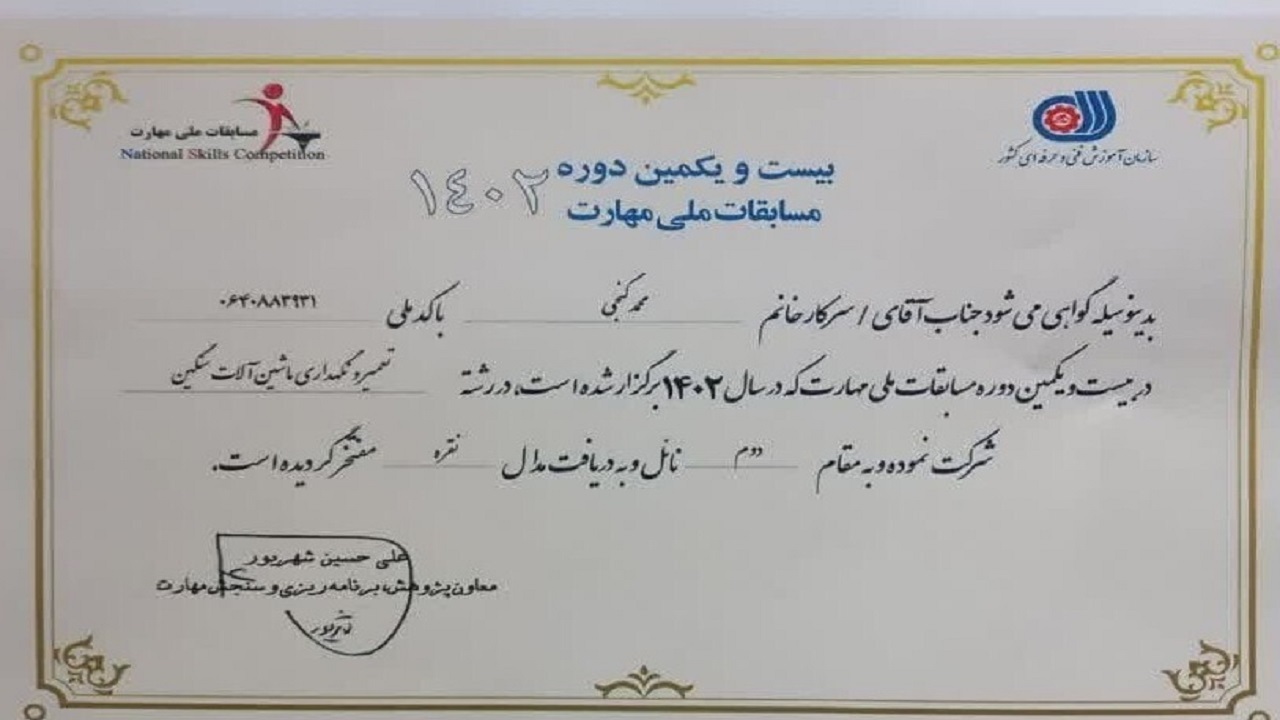 مسابقات ملی مهارت
National Skills Competition
سازمان آموزش فنی و حرفه ای کشور
بیست و یکمین دوره
مسابقات ملی مهارت
۱۴۰۲
بدینوسیله گواهی می شود جناب آقای / سرکار خانم محمد گنجی با کد ملی ۰۶۴۰۸۸۳۹۳۱
در بیست و یکمین دوره مسابقات ملی مهارت که در سال ۱۴۰۲ برگزار شده است، در رشته تعمیر و نگهداری ماشین آلات سنگین
شرکت نموده و به مقام دوم نائل و به دریافت مدال نقره مفتخر گردیده است.
علی حسین شهریور
معاون پژوهش، برنامه ریزی و سنجش مهارت